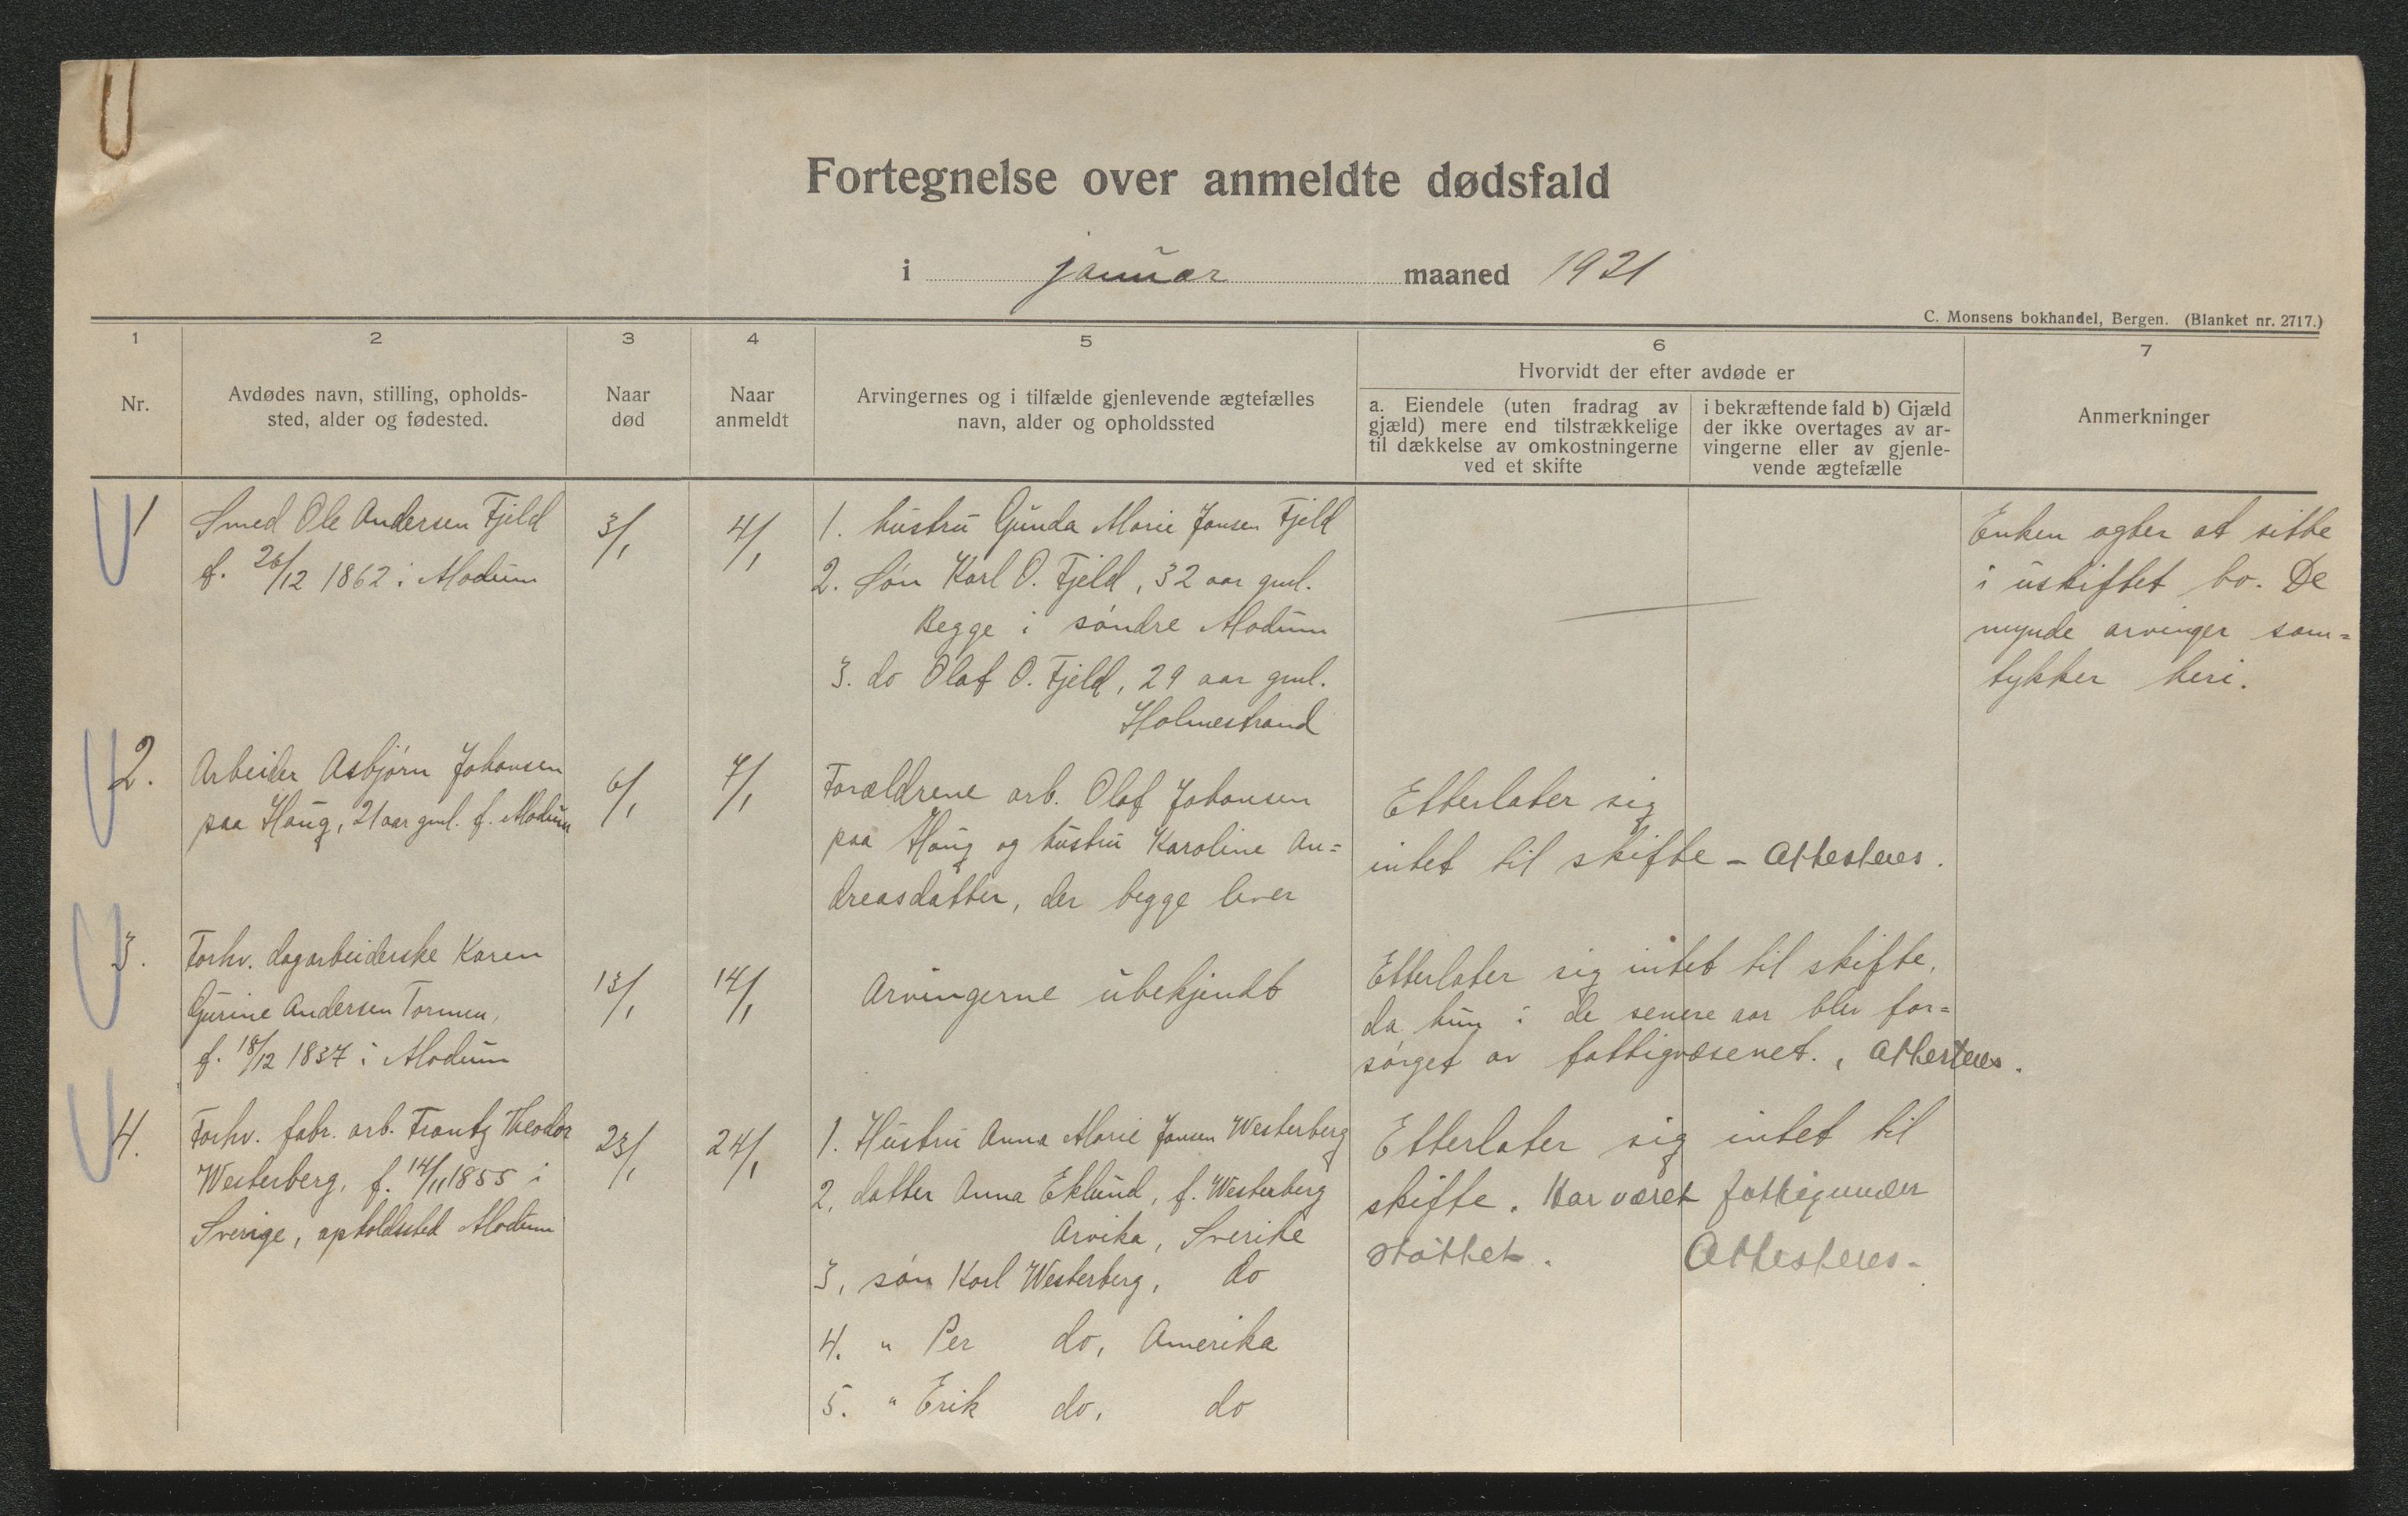 Fortegnelse over anmeldte dødsfald
i januar maaned 1921
C. Monsens bokhandel, Bergen. (Blanket nr. 2717.)
1 2 3 4 5 6 7
Nr.
Avdødes navn, stilling, opholds-
sted, alder og fødested.
Naar
død
Naar
anmeldt
Arvingernes og i tilfælde gjenlevende ægtefælles
navn, alder og opholdssted
Hvorvidt der efter avdøde er
a. Eiendele (uten fradrag av
gjæld) mere end tilstrækkelige
til dækkelse av omkostningerne
ved et skifte
i bekræftende fald b) Gjæld
der ikke overtages av ar-
vingerne eller av gjenle-
vende ægtefælle
Anmerkninger
1
Smed Ole Andersen Fjeld
f. 26/12 1862 i Modum
3/1
4/1
1. hustru Gunda Marie Jansen Fjeld
2. Søn Karl O. Fjeld, 32 aar gml.
Begge i søndre Modum
3. do Olaf O. Fjeld, 29 aar gml.
Holmestrand
Enken agter at sitte
i uskiftet bo. De
mynde arvinger sam=
tykker heri.
2.
Arbeider Asbjørn Johansen
paa Haug, 21 aar gml. f. Modum
6/1
7/1
Forældrene arb. Olaf Johansen
paa Haug og hustru Karoline An=
dreasdatter, der begge lever
Etterlater sig
intet til skifte - Attesteres.
3.
Forhv. dagarbeiderske Karen
Gurine Andersen Tormen,
f. 18/12 1837 i Modum
13/1
14/1
Arvingerne ubekjendt
Etterlater sig intet til skifte,
da hun i de senere aar blev for=
sørget av fattigvæsenet. , Attesteres.
4.
Forhv. fabr. arb. Frantz Theodor
Westerberg, f. 14/11 1855 i
Sverige, opholdssted Modum
23/1
24/1
1. Hustru Anna Marie Jansen Westerberg
2, datter Anna Eklund, f. Westerberg
Arvika, Sverike
3, søn Karl Westerberg, do
4. " Per do, Amerika
5. " Erik do, do
Etterlater sig intet til
skifte. Har været fattigunder
støttet. Attesteres.